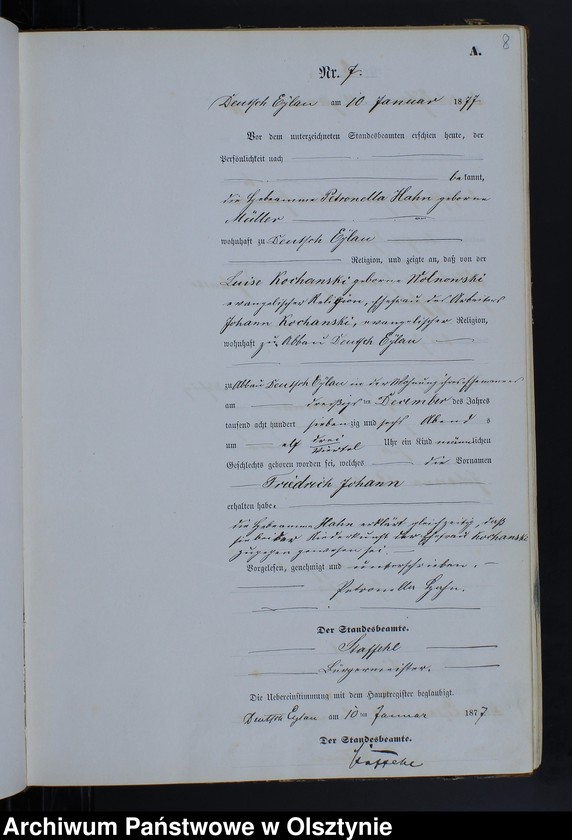 8
A.
Nr. 7.
Deutsch Eylau am 10 Januar 1877
Vor dem unterzeichneten Standesbeamten erschien heute, der
Persönlichkeit nach
bekannt,
die Hebeamme Petronella Hahn geborne
Müller
wohnhaft zu Deutsch Eylau
Religion, und zeigte an, daß von der
Luise Kochanski geborne Wolnowski
evangelischer Religion, Ehefrau des Arbeiters
Johann Kochanski, evangelischer Religion,
wohnhaft zu Abbau Deutsch Eylau
zu Abbau Deutsch Eylau in der Wohnung ihres Ehemannes
am dreißigs ten December des Jahres
tausend acht hundert siebenzig und sechs Abend s
um elf drei viertel Uhr ein Kind männlichen
Geschlechts geboren worden sei, welches die Vornamen
Friedrich Johann
erhalten habe.
die Hebeamme Hahn erklärt gleichzeitig, daß
sie bei der Niederkunft der Ehefrau Kochanski
zugegen gewesen sei.
Vorgelesen, genehmigt und unterschrieben.
Petronella Hahn.
Der Standesbeamte.
Bürgermeister.
Die Uebereinstimmung mit dem Hauptregister beglaubigt.
Deutsch Eylau am 10 ten Januar 1877
Der Standesbeamte.
Archiwum Państwowe w Olsztynie